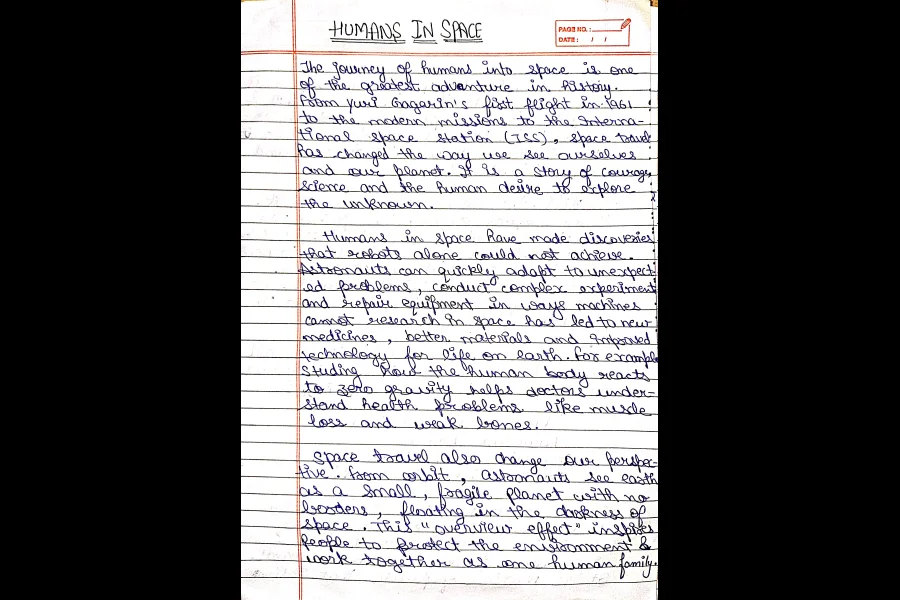 HUMANS IN SPACE
PAGE NO.:
DATE: / /
The journey of humans into space is one
of the greatest adventure in history.
From Yuri Gagarin's first flight in 1961
to the modern missions to the Interna-
tional space station (ISS), space travel
has changed the way we see ourselves
and our planet. It is a story of courage,
science and the human desire to explore
the unknown.
Humans in space have made discoveries
that robots alone could not achieve.
Astronauts can quickly adapt to unexpect-
ed problems, conduct complex experiment
and repair equipment in ways machines
cannot research in space has led to new
medicines, better materials and improved
technology for life on earth. For example
studing how the human body reacts
to zero gravity helps doctors under-
stand health problems like muscle
loss and weak bones.
Space travel also change our perspec-
tive. From orbit, astronauts see earth
as a small, fragile planet with no
borders, floating in the darkness of
space. This "overview effect" inspires
people to protect the environment &
work together as one human family.